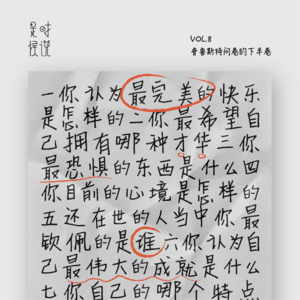 是时
候说
VOL.8
普鲁斯特问卷的下半卷
一你认为最完美的快乐
是怎样的二你最希望自
己拥有哪种才华三你
最恐惧的东西是什么四
你目前的心境是怎样的
五还在世的人当中你最
钦佩的是谁六你认为自
己最伟大的成就是什么
七你自己的哪个特点